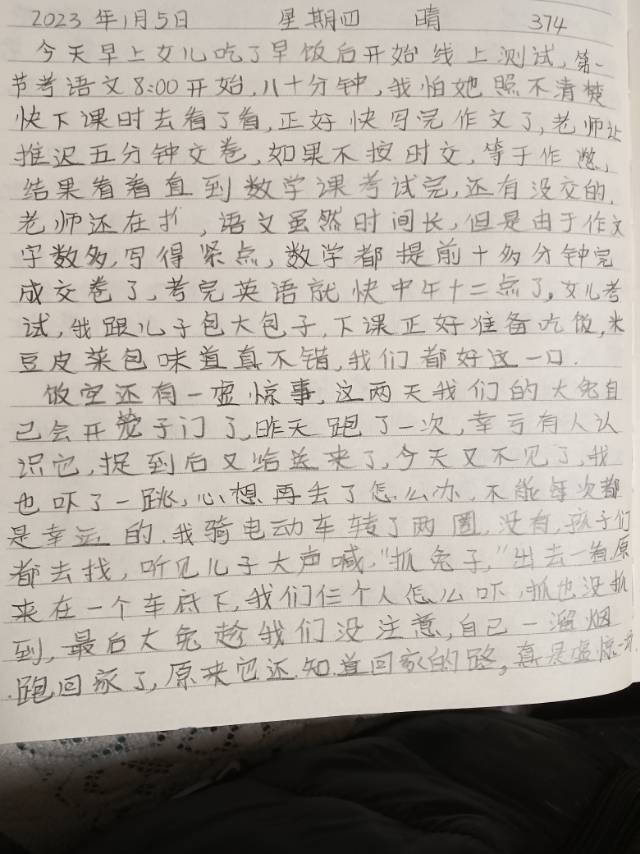 2023年1月5日 星期四 晴 374
今天早上女儿吃了早饭后开始线上测试,第一
节考语文8:00开始,八十分钟,我怕她照不清楚
快下课时去看了看,正好快写完作文了,老师让
推迟五分钟交卷,如果不按时交,等于作弊,
结果看着直到数学课考试完,还有没交的,
老师还在扌,语文虽然时间长,但是由于作文
字数多,写得紧点,数学都提前十多分钟完
成交卷了,考完英语就快中午十二点了,女儿考
试,我跟儿子包大包子,下课正好准备吃饭,米
豆皮菜包味道真不错,我们都好这一口.
饭空还有一虚惊事,这两天我们的大兔自
己会开笼子门了,昨天跑了一次,幸亏有人认
识它,捉到后又给送来了,今天又不见了,我
也吓了一跳,心想再丢了怎么办,不能每次都
是幸运的.我骑电动车转了两圈,没有,孩子们
都去找,听见儿子大声喊,"抓兔子,"出去一看,原
来在一个车底下,我们仨个人怎么吓,抓也没抓
到,最后大兔趁我们没注意,自己一溜烟
跑回家了,原来它还知道回家的路,真是虚惊一